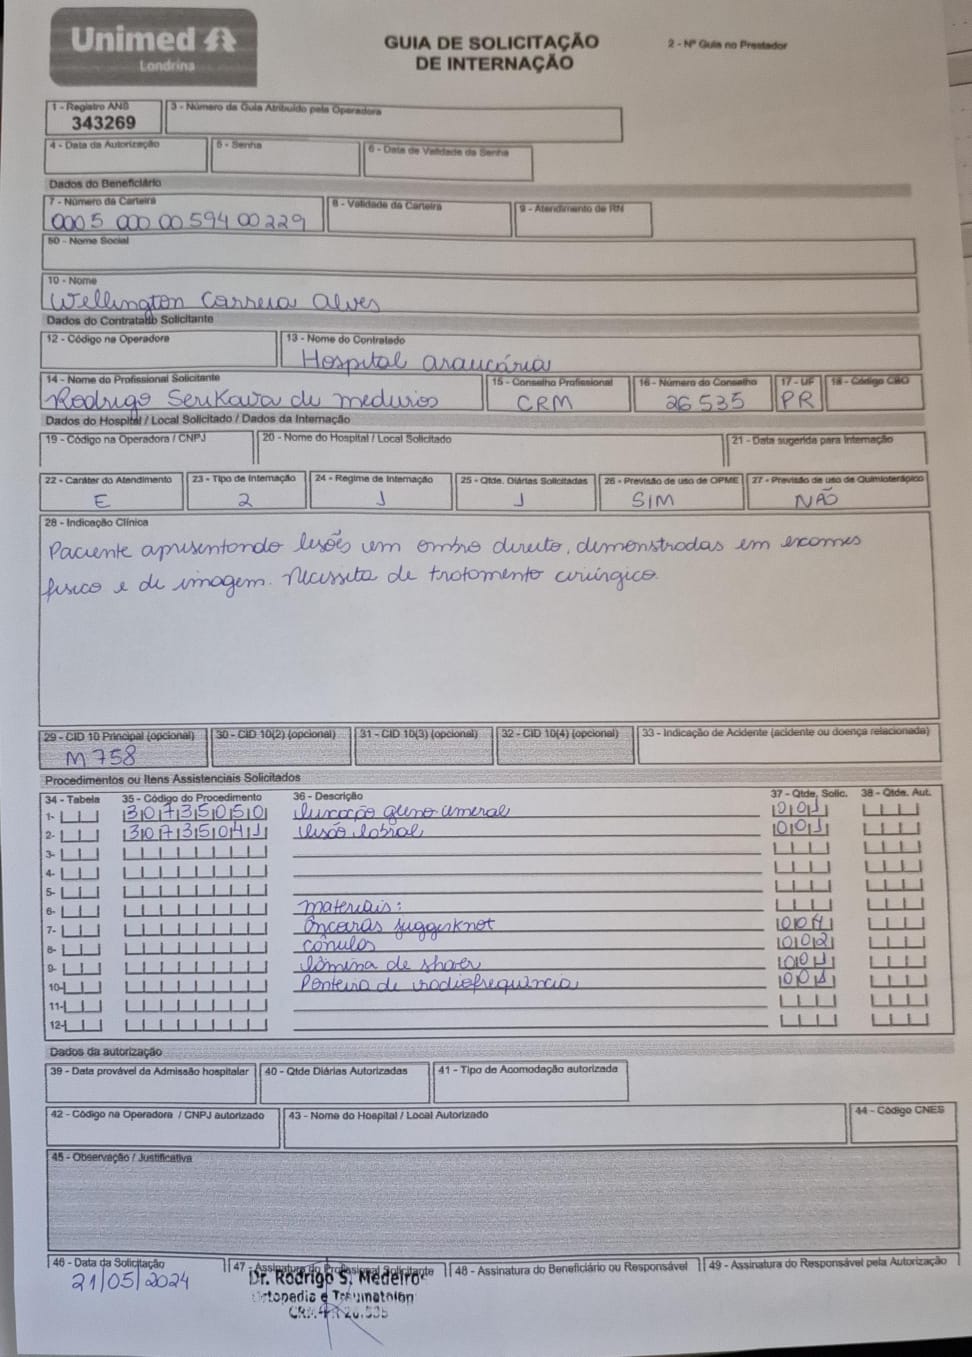 Unimed
Londrina
GUIA DE SOLICITAÇÃO
DE INTERNAÇÃO
2 - Nº Guia no Prestador
1 - Registro ANS
343269
3 - Número da Guia Atribuído pela Operadora
4 - Data da Autorização
5 - Senha
6 - Data de Validade da Senha
Dados do Beneficiário
7 - Número da Carteira
0005 000 00 594 00 229
8 - Validade da Carteira
9 - Atendimento de RN
50 - Nome Social
10 - Nome
Wellington Correia Alves
Dados do Contratado Solicitante
12 - Código na Operadora
13 - Nome do Contratado
Hospital Araucária
14 - Nome do Profissional Solicitante
Rodrigo Serikawa de Medeiros
15 - Conselho Profissional
CRM
16 - Número do Conselho
26 535
17 - UF
PR
18 - Código CBO
Dados do Hospital / Local Solicitado / Dados da Internação
19 - Código na Operadora / CNPJ
20 - Nome do Hospital / Local Solicitado
21 - Data sugerida para Internação
22 - Caráter do Atendimento
E
23 - Tipo de Internação
2
24 - Regime de Internação
1
25 - Qtde. Diárias Solicitadas
1
26 - Previsão de uso de OPME
SIM
27 - Previsão de uso de Quimioterápico
NÃO
28 - Indicação Clínica
Paciente apresentando lesões em ombro direito, demonstradas em exames
físico e de imagem. Necessita de tratamento cirúrgico.
29 - CID 10 Principal (opcional)
M758
30 - CID 10(2) (opcional)
31 - CID 10(3) (opcional)
32 - CID 10(4) (opcional)
33 - Indicação de Acidente (acidente ou doença relacionada)
Procedimentos ou Itens Assistenciais Solicitados
34 - Tabela 35 - Código do Procedimento 36 - Descrição 37 - Qtde. Solic. 38 - Qtde. Aut.
1- 30735050 luxação gleno umeral 001
2- 30735041 lesão labral 001
3-
4-
5-
6- materiais:
7- Âncoras juggerknot 004
8- cânulas 002
9- lâmina de shaver 001
10- Ponteira de radiofrequência 001
11-
12-
Dados da autorização
39 - Data provável da Admissão hospitalar
40 - Qtde Diárias Autorizadas
41 - Tipo de Acomodação autorizada
42 - Código na Operadora / CNPJ autorizado
43 - Nome do Hospital / Local Autorizado
44 - Código CNES
45 - Observação / Justificativa
46 - Data da Solicitação
21/05/2024
47 - Assinatura do Profissional Solicitante
Dr. Rodrigo S. Medeiro
Ortopedia e Traumatolon
48 - Assinatura do Beneficiário ou Responsável
49 - Assinatura do Responsável pela Autorização